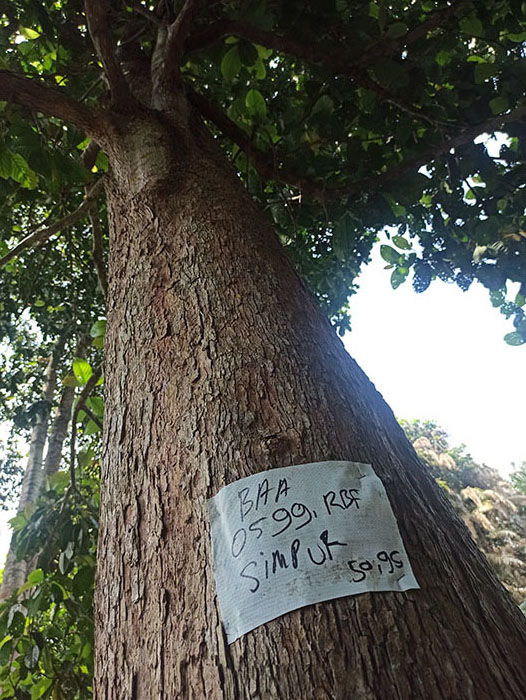 BAA
0599, RBF
SiMPUR
50,95